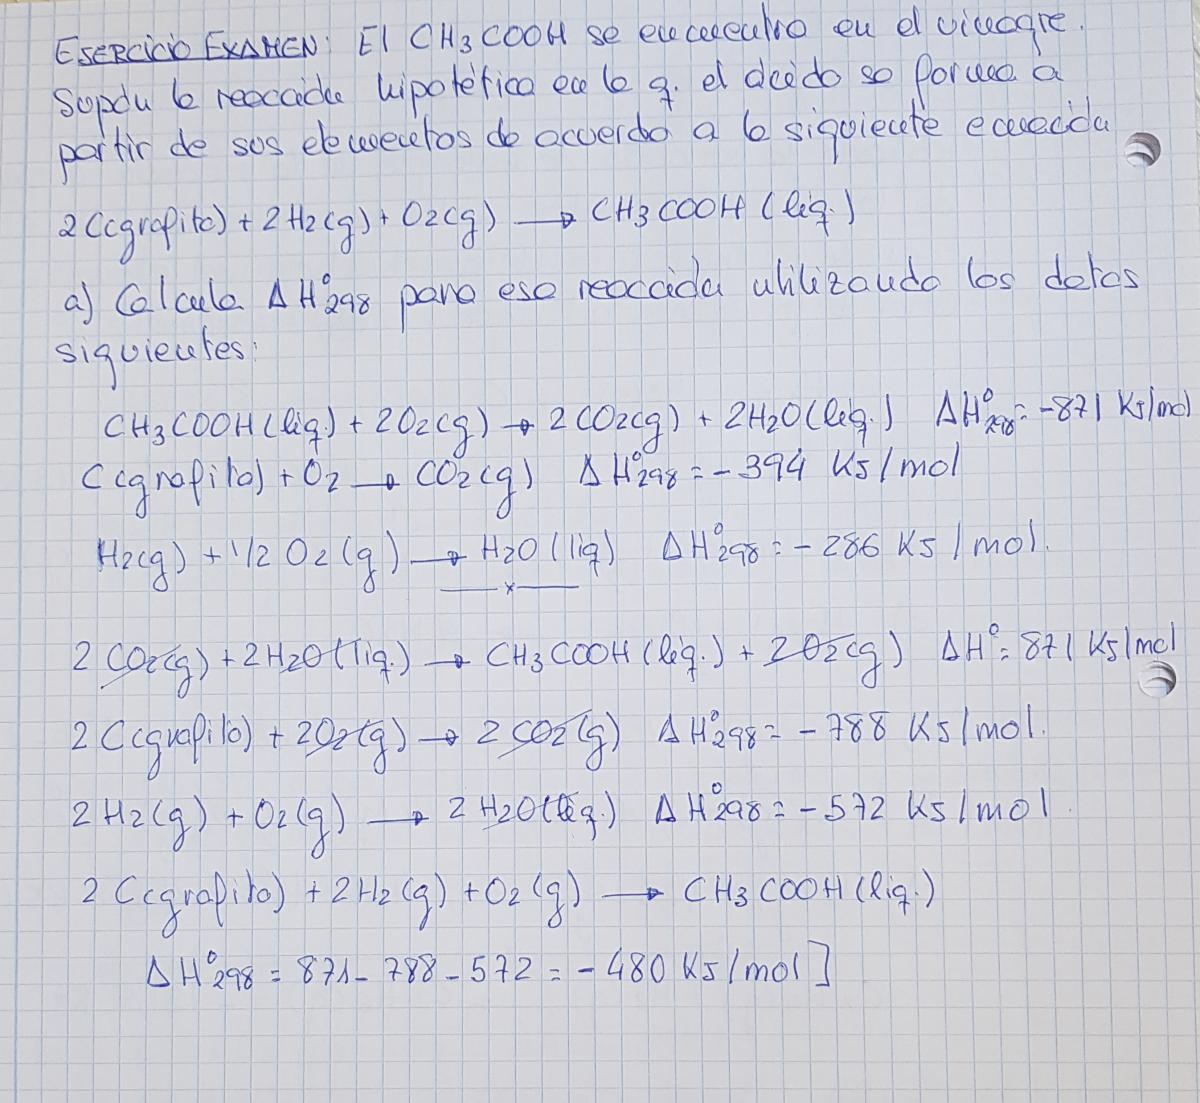 ESERCICIO EXAMEN: El CH3COOH se encuentra en el vinagre.
Supón la reacción hipotética en la q. el ácido se forma a
partir de sus elementos de acuerdo a la siguiente ecuación
2C(grafito) + 2H2(g) + O2(g) → CH3COOH (liq.)
a) Calcula ΔH°298 para esa reacción utilizando los datos
siguientes:
CH3COOH(liq.) + 2O2(g) → 2CO2(g) + 2H2O(liq.) ΔH°298 = -871 KJ/mol
C(grafito) + O2 → CO2(g) ΔH°298 = -394 KJ/mol
H2(g) + 1/2 O2(g) → H2O(liq) ΔH°298 = -286 KJ/mol.
2CO2(g) + 2H2O(liq.) → CH3COOH(liq.) + 2O2(g) ΔH° = 871 KJ/mol
2C(grafito) + 2O2(g) → 2CO2(g) ΔH°298 = -788 KJ/mol.
2H2(g) + O2(g) → 2H2O(liq.) ΔH°298 = -572 KJ/mol.
2C(grafito) + 2H2(g) + O2(g) → CH3COOH(liq.)
ΔH°298 = 871 - 788 - 572 = -480 KJ/mol]